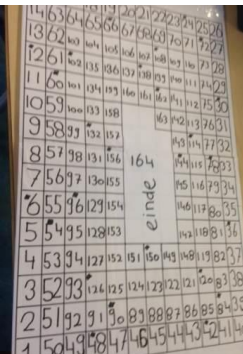 14 63 64 65 66 18 19 20 21 22 23 24 25 26
13 62 103 104 105 106 67 68 69 70 71 72 27
12 61 102 135 136 137 138 139 140 110 73 28
11 60 101 134 159 160 161 162 141 111 74 29
10 59 100 133 158 163 142 112 75 30
9 58 99 132 157 143 114 77 32
8 57 98 131 156 164 144 115 78 33
7 56 97 130 155 einde 145 116 79 34
6 55 96 129 154 146 117 80 35
5 54 95 128 153 147 118 81 36
4 53 94 127 152 151 150 149 148 119 82 37
3 52 93 126 125 124 123 122 121 120 83 38
2 51 92 91 90 89 88 87 86 85 84
1 50 49 48 47 46 45 44 43 42 41